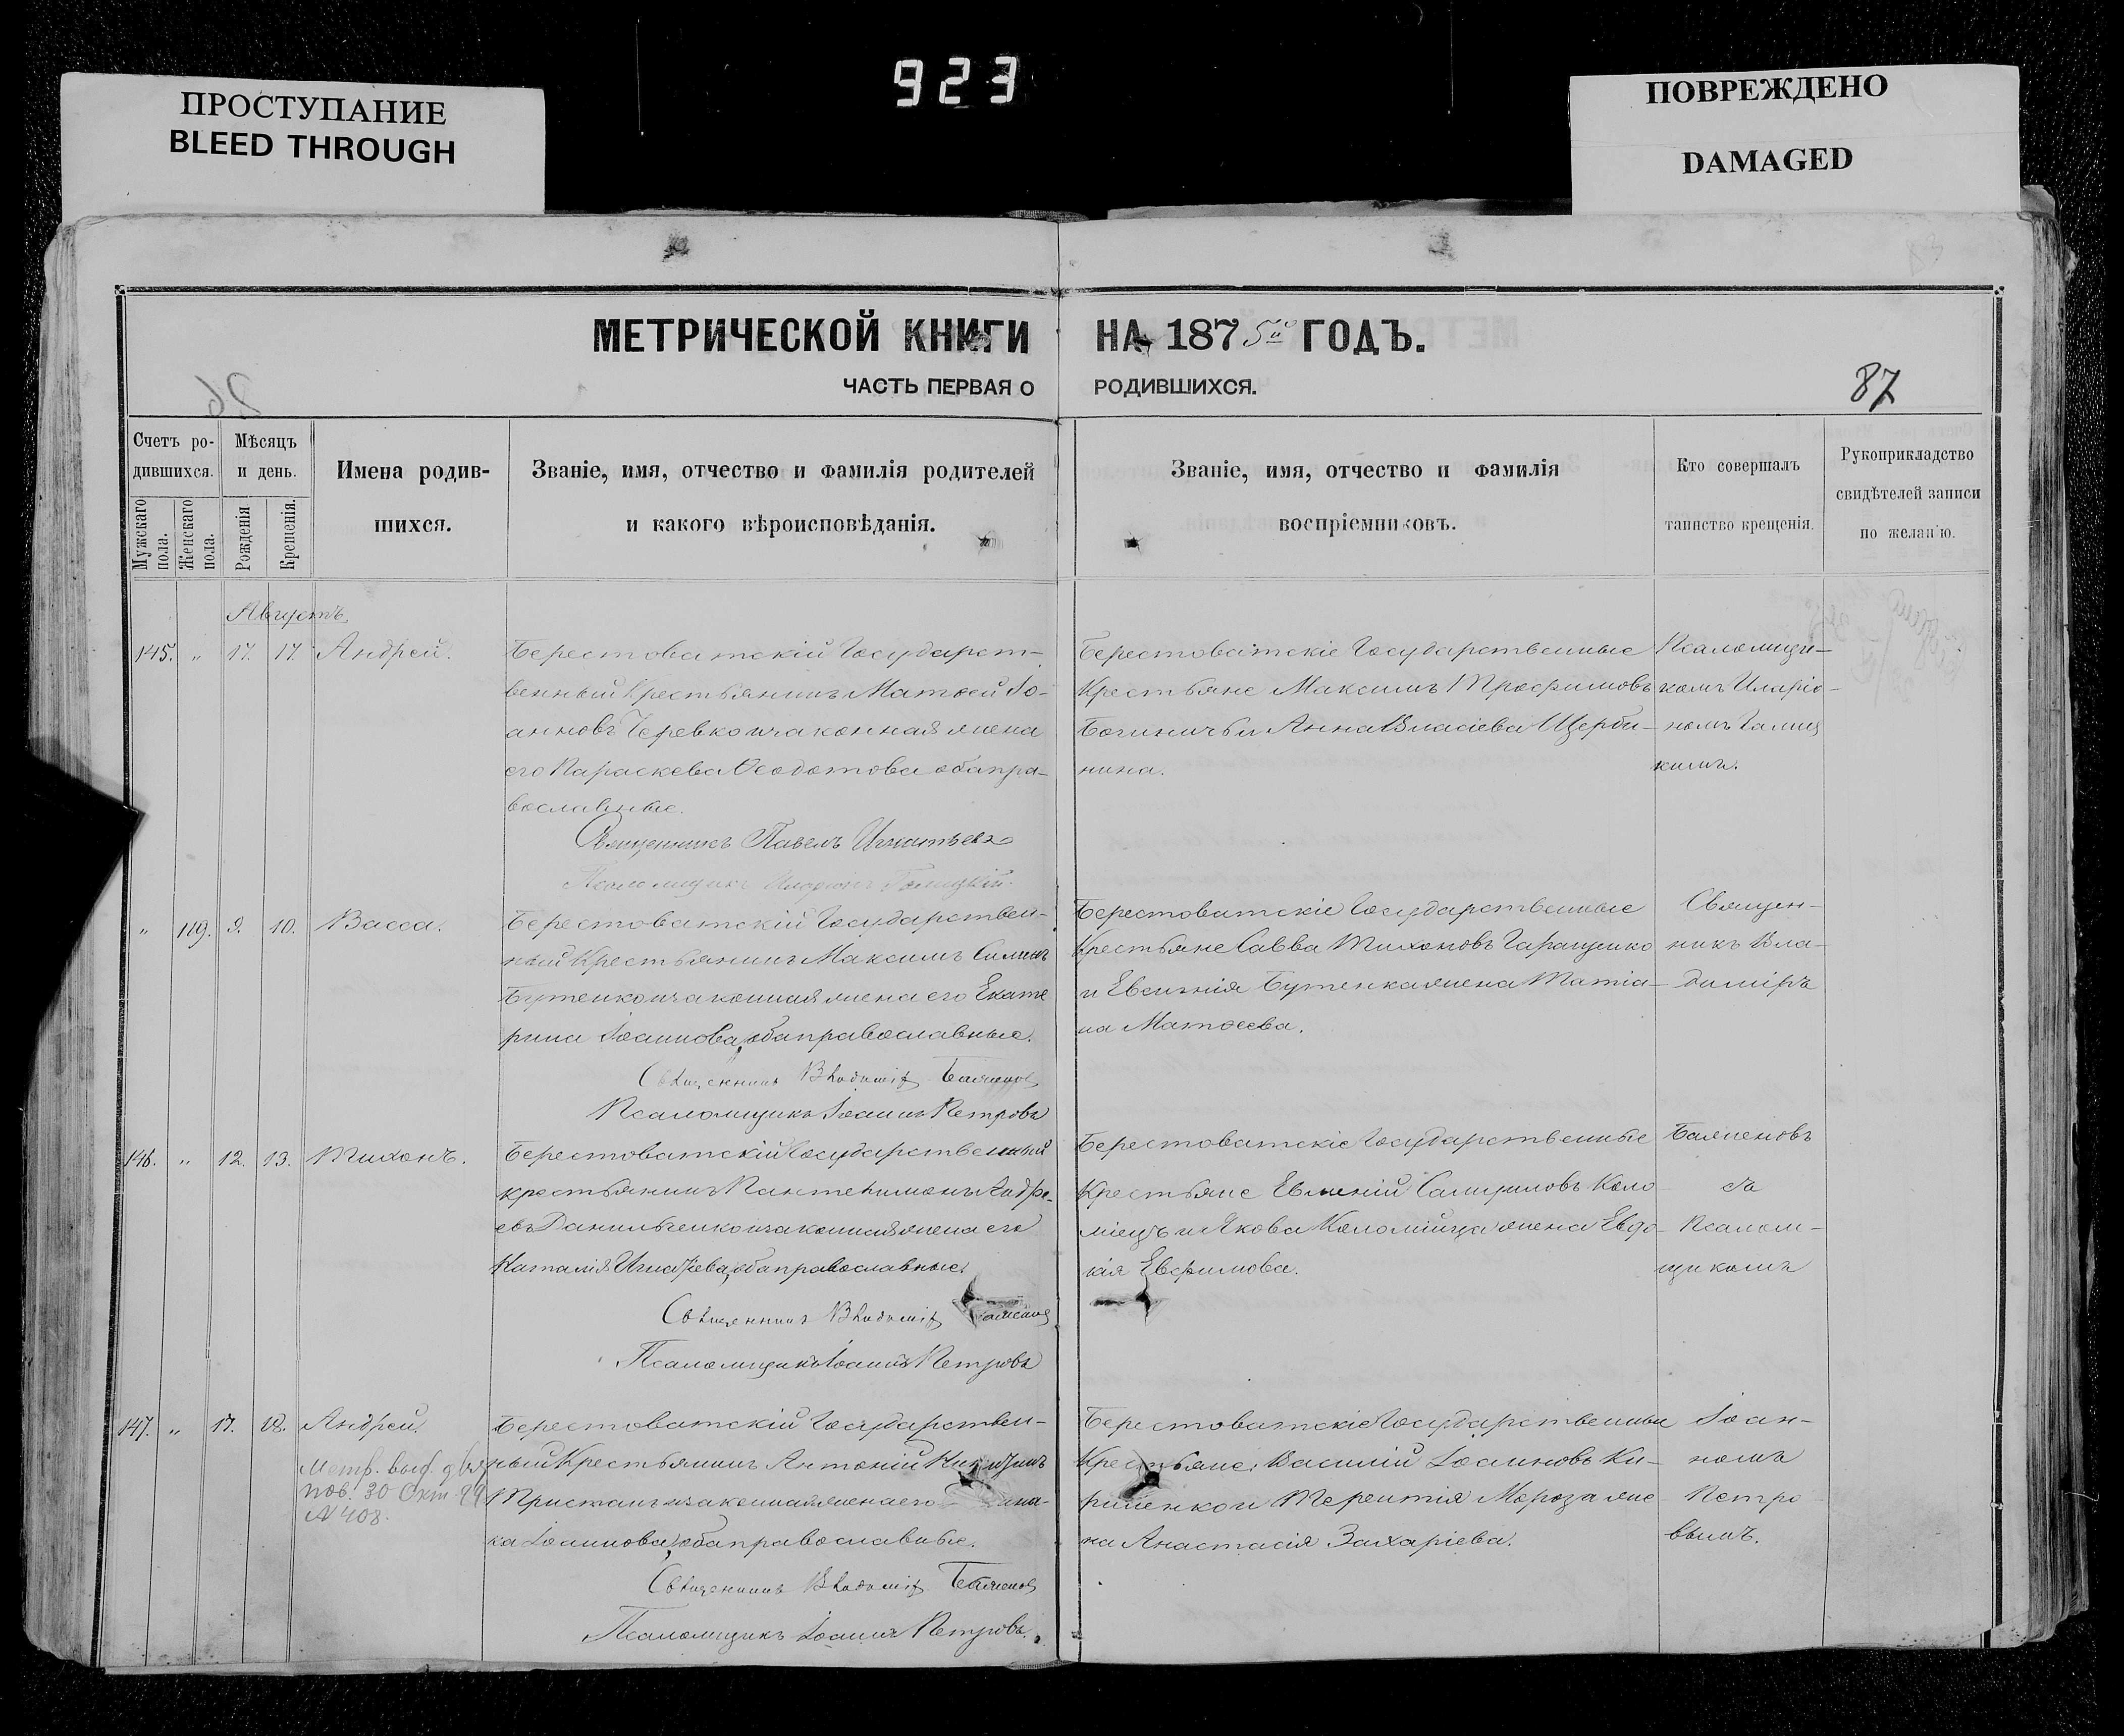 923
ПРОСТУПАНИЕ
BLEED THROUGH
ПОВРЕЖДЕНО
DAMAGED
МЕТРИЧЕСКОЙ КНИГИ НА 1875й ГОДЪ.
ЧАСТЬ ПЕРВАЯ О РОДИВШИХСЯ.
87
Счетъ ро-
дившихся.
Мужскаго пола.
Женскаго пола.
Мѣсяцъ
и день.
Рожденія
Крещенія.
Имена родив-
шихся.
Званіе, имя, отчество и фамилія родителей
и какого вѣроисповѣданія.
Званіе, имя, отчество и фамилія
воспріемниковъ.
Кто совершалъ
таинство крещенія.
Рукоприкладство
свидѣтелей записи
по желанію.
Августъ
145. " 17. 17. Андрей.
Берестоватскій Государст-
венный Крестьянинъ Матѳей Іо-
анновъ Черевко и законная жена
его Параскева Ѳеодотова оба пра-
вославные.
Священникъ Павелъ Игнатьевъ
Псаломщикъ Иларіонъ Галицкій.
Берестоватскіе Государственные
Крестьяне Максимъ Трофимовъ
и Анна Власіева Щерби-
нина.
Псаломщи-
комъ Иларіо-
номъ Галиц
кимъ.
" 119. 9. 10. Васса.
Берестоватскій Государствен-
ный Крестьянинъ Максимъ
Бутенко и законная жена его Екате
рина Іоаннова, оба православные.
Священникъ Владиміръ Баженовъ
Псаломщикъ Іоаннъ Петровъ
Берестоватскіе Государственные
Крестьяне Савва Тихоновъ Гаращенко
и Евсигнія Бутенка жена Татіа-
на Матѳеева.
Священ-
никъ Вла-
диміръ
146. " 12. 13. Тихонъ.
Берестоватскій Государственный
крестьянинъ Пантелимонъ Андре-
евъ Данильченко и законная жена его
Наталія Игнатева, оба православные.
Священникъ Владиміръ Баженовъ
Псаломщикъ Іоаннъ Петровъ
Берестоватскіе Государственные
Крестьяне Евмений Коло
міецъ и Якова Коломійца жена Евдо-
кія Евфимова.
Баженовъ
съ
Псалом-
щикомъ
147. " 17. 18. Андрей.
Метр. выд. для
пов. 30 Окт.
N 408.
Берестоватскій Государствен-
ный Крестьянинъ Антоній
Тристанъ и законная жена его
ка Іоаннова, оба православные.
Священникъ Владиміръ Баженовъ
Псаломщикъ Іоаннъ Петровъ.
Берестоватскіе Государственные
Крестьяне: Василій Іоанновъ Ки-
риленко и Терентія Мороза же
на Анастасія Захаріева.
Іоан-
номъ
Петро
вымъ.